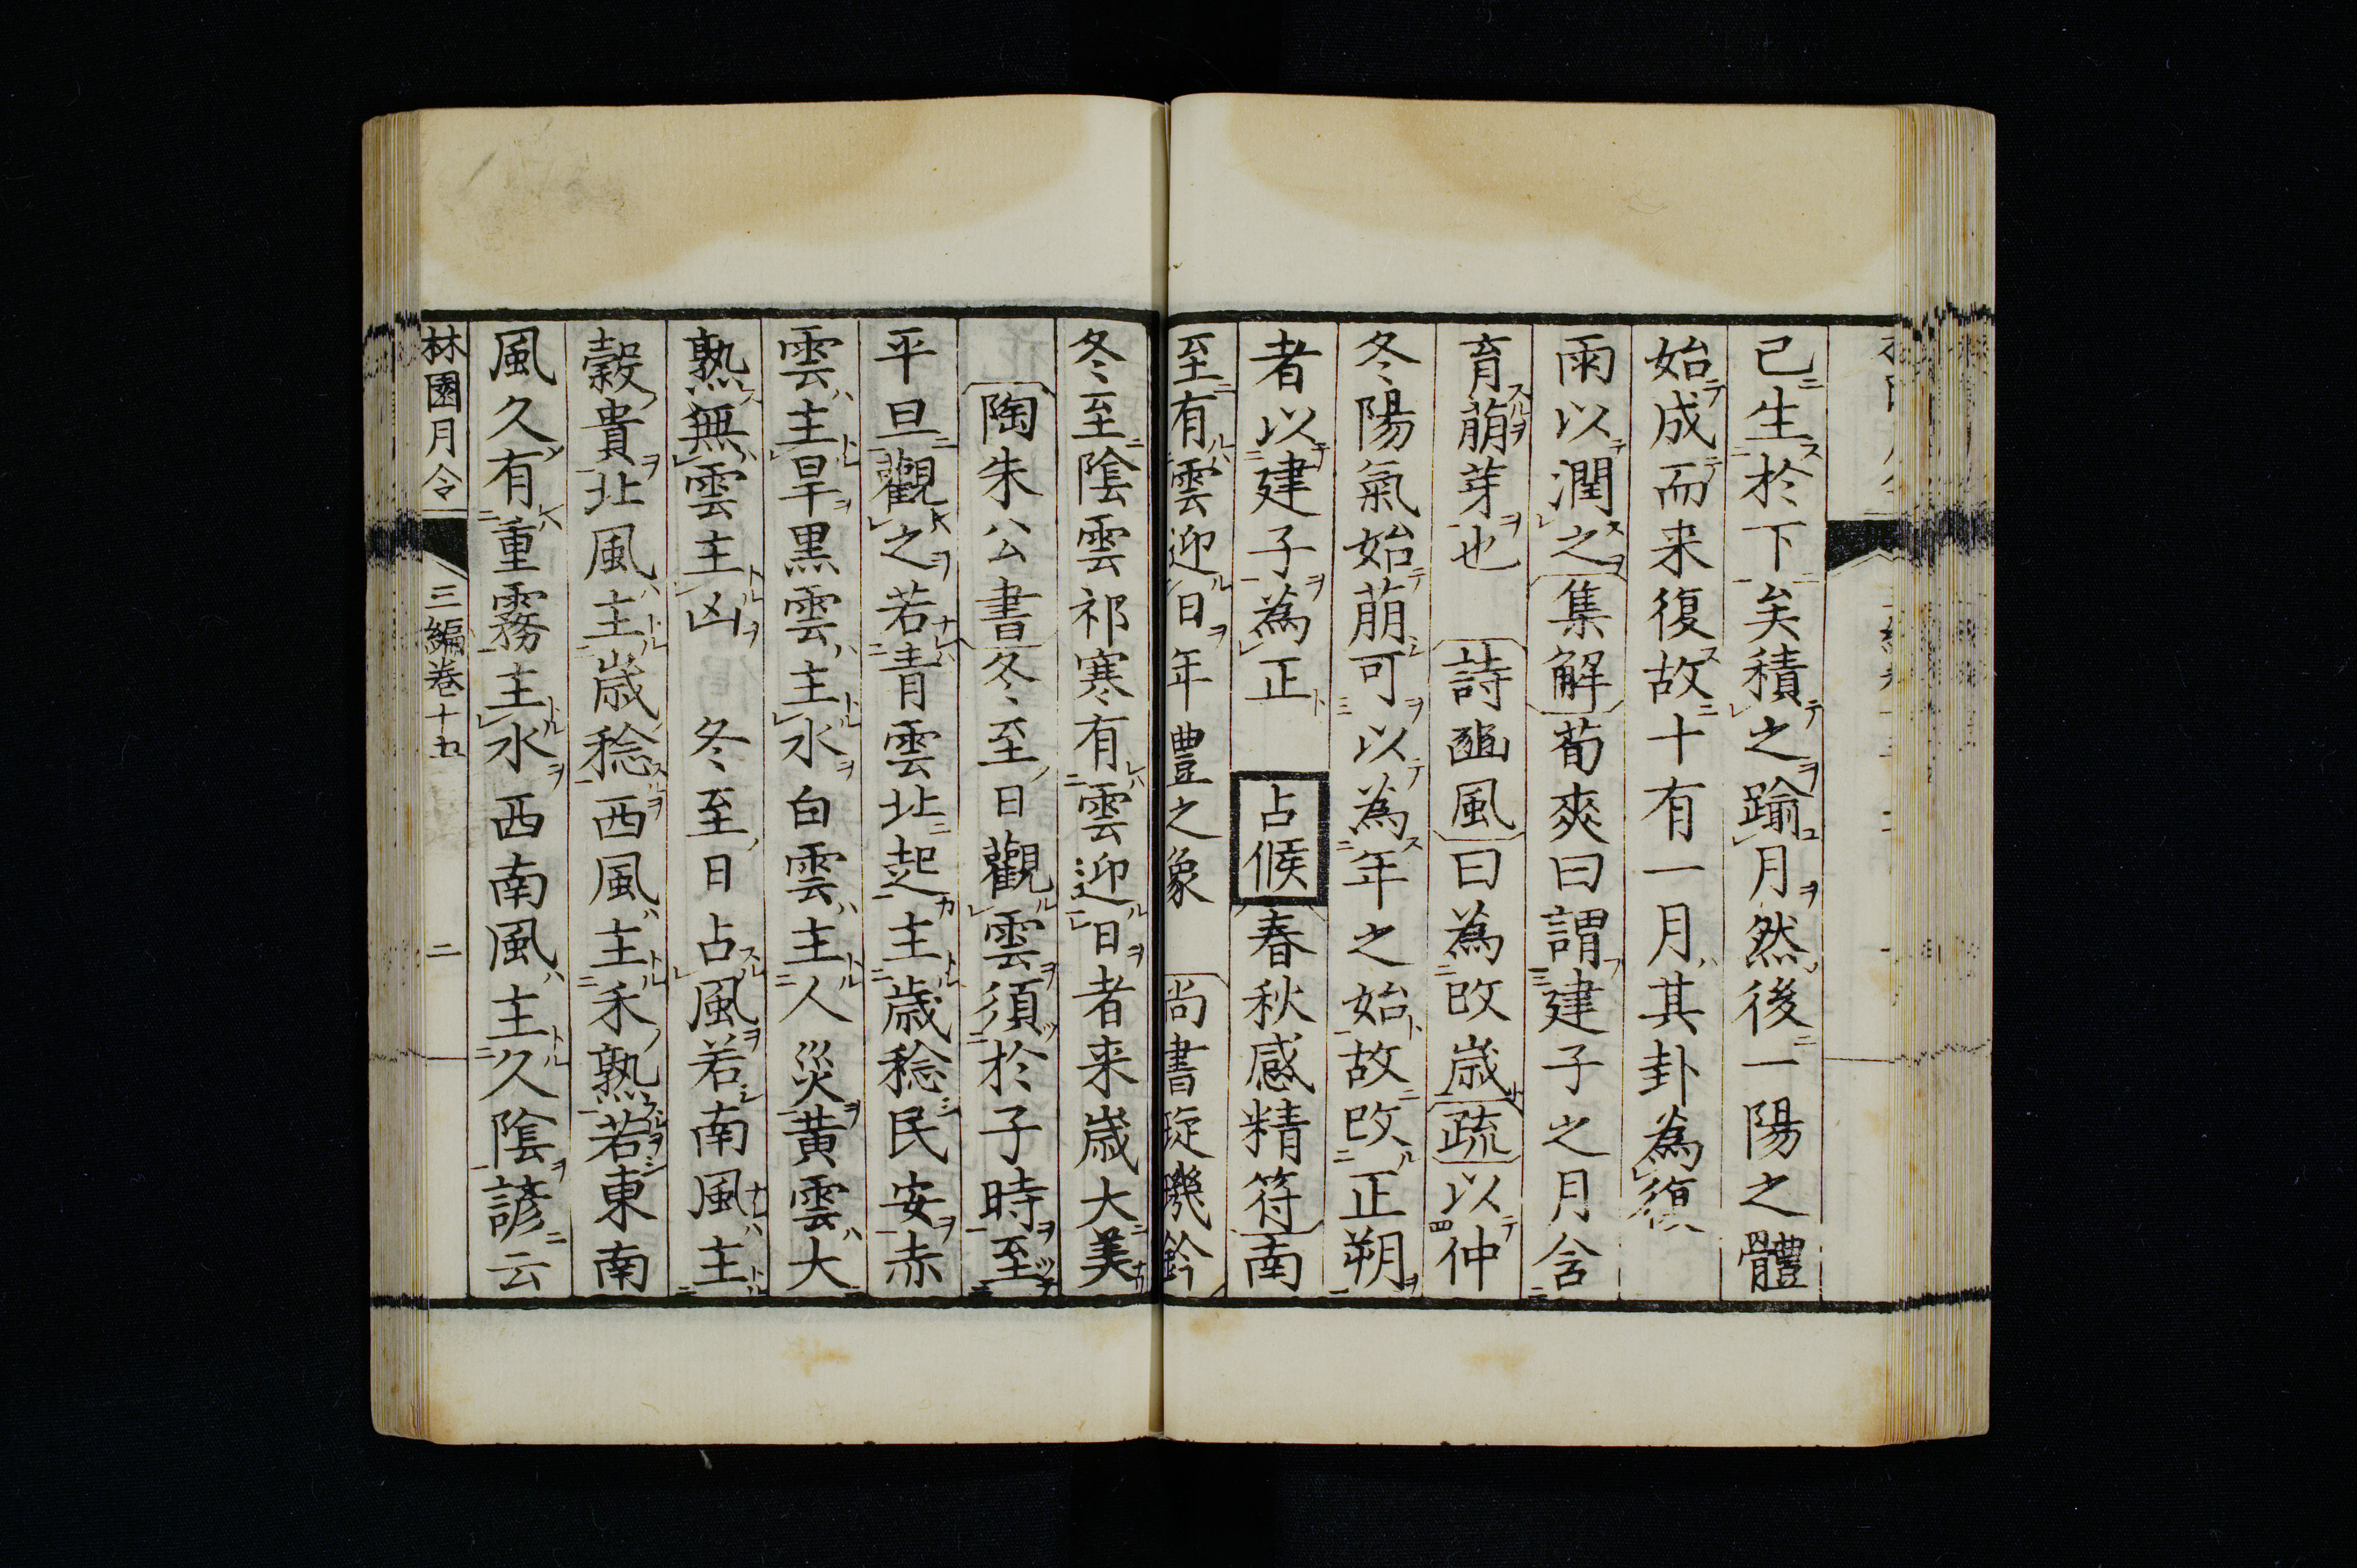 已生於下矣積之踰月然後一陽之體
始成而来復故十有一月其卦為復
雨以潤之集解荀爽曰謂建子之月含
育萠芽也 詩豳風曰為改歳疏以仲
冬陽氣始萠可以為年之始故改正朔
者以建子為正 占候春秋感精符南
至有雲迎日年豊之象 尚書琁璣鈐
冬至陰雲祁寒有雲迎日者来歳大美
陶朱公書冬至日觀雲須於子時至
平旦觀之若青雲北起主歳稔民安赤
雲主旱黒雲主水白雲主人災黄雲大
熟無雲主凶 冬至日占風若南風主
穀貴北風主歳稔西風主禾熟若東南
風久有重霧主水西南風主久陰諺云
林園月令 三編巻十五 二